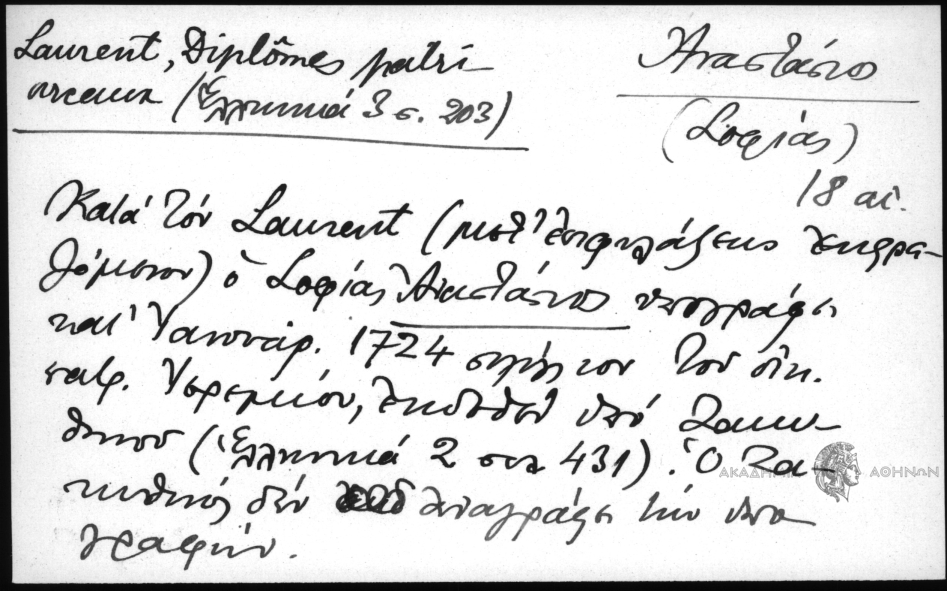 Laurent, Diplômes patri-
arcaux (Ἑλληνικά 3 σ. 203)
Ἀναστάσιος
(Σοφίας)
18 αἰ.
Κατά τόν Laurent (μετ' ἐπιφυλάξεως ἐκφρα-
ζόμενον) ὁ Σοφίας Ἀναστάσιος ὑπογράφει
κατ' Ἰαννουάρ. 1724 σιγίλλιον τοῦ οἰκ.
πατρ. Ἱερεμίου, ἐκδοθέν ὑπό Ζακυ-
θηνοῦ (Ἑλληνικά 2 σελ 431). Ὁ Ζα-
κυθηνός δέν ἀναγράφει τήν ὑπο
γραφήν.
ΑΚΑΔΗΜΙΑ ΑΘΗΝΩΝ